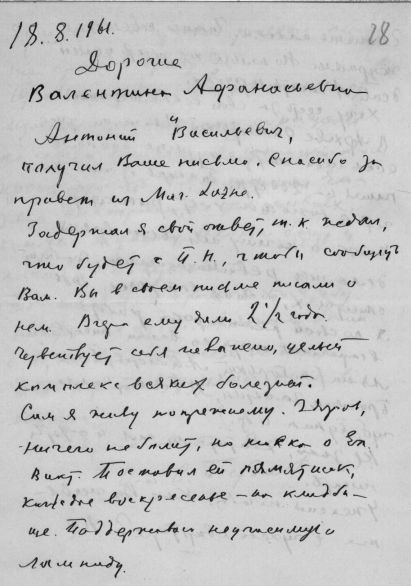 18.8.1961. 28
Дорогие
Валентина Афанасьевна
и
Антоний Васильевич,
получил Ваше письмо. Спасибо за
привет из Маг.
Задержал я свой ответ, т.к ждал,
что будет с П.Н., чтобы сообщить
Вам. Вы в своем письме писали о
нем. Вчера ему дали 2 1/2 года.
Чувствует себя неважно, целый
комплекс всяких болезней.
Сам я живу попрежнему. Здоров,
ничего не болит, но тоска о Ек.
Викт. Поставил ей памятник,
каждое воскресенье – на кладби–
ще. Поддерживаю неугасимую
лампаду.